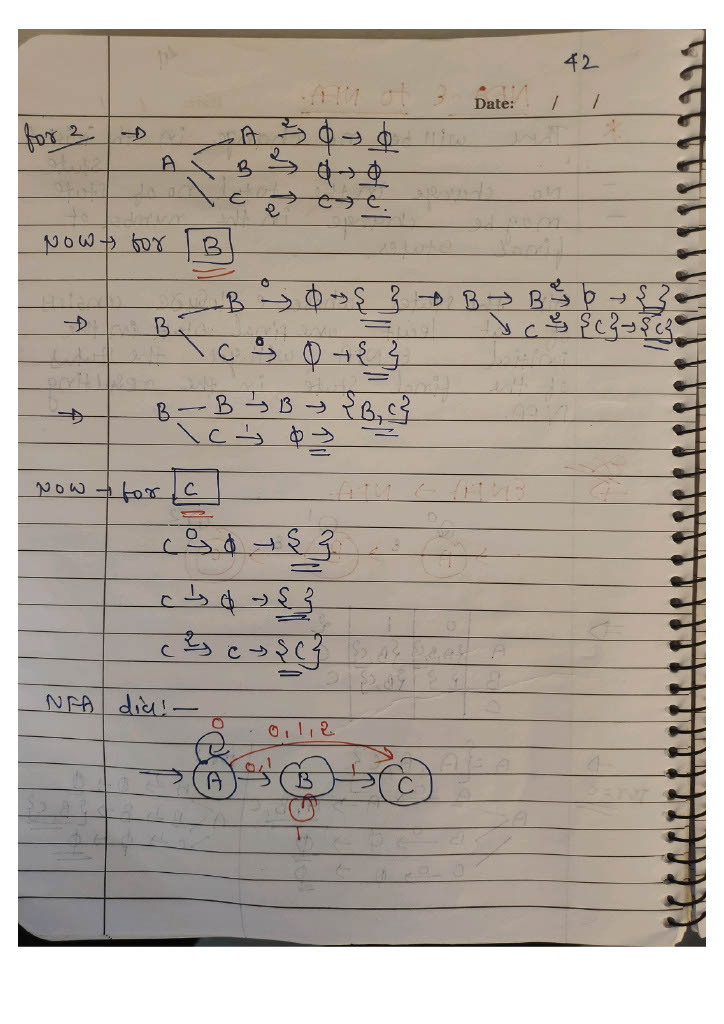 42
Date: / /
for 2 → A A 2→ ϕ → ϕ
B 2→ ϕ → ϕ
C →2 C → C.
NOW → for B
⇒ B B 0→ ϕ → { } → B → B 2→ ϕ → { }
C 0→ ϕ → { } C 2→ {C} → {C}
⇒ B — B 1→ B → {B, C}
C 1→ ϕ →
NOW → for C
C 0→ ϕ → { }
C 1→ ϕ → { }
C 2→ C → {C}
NFA dia! —
0 0, 1, 2
→ A 0,1→ B 1→ C
1